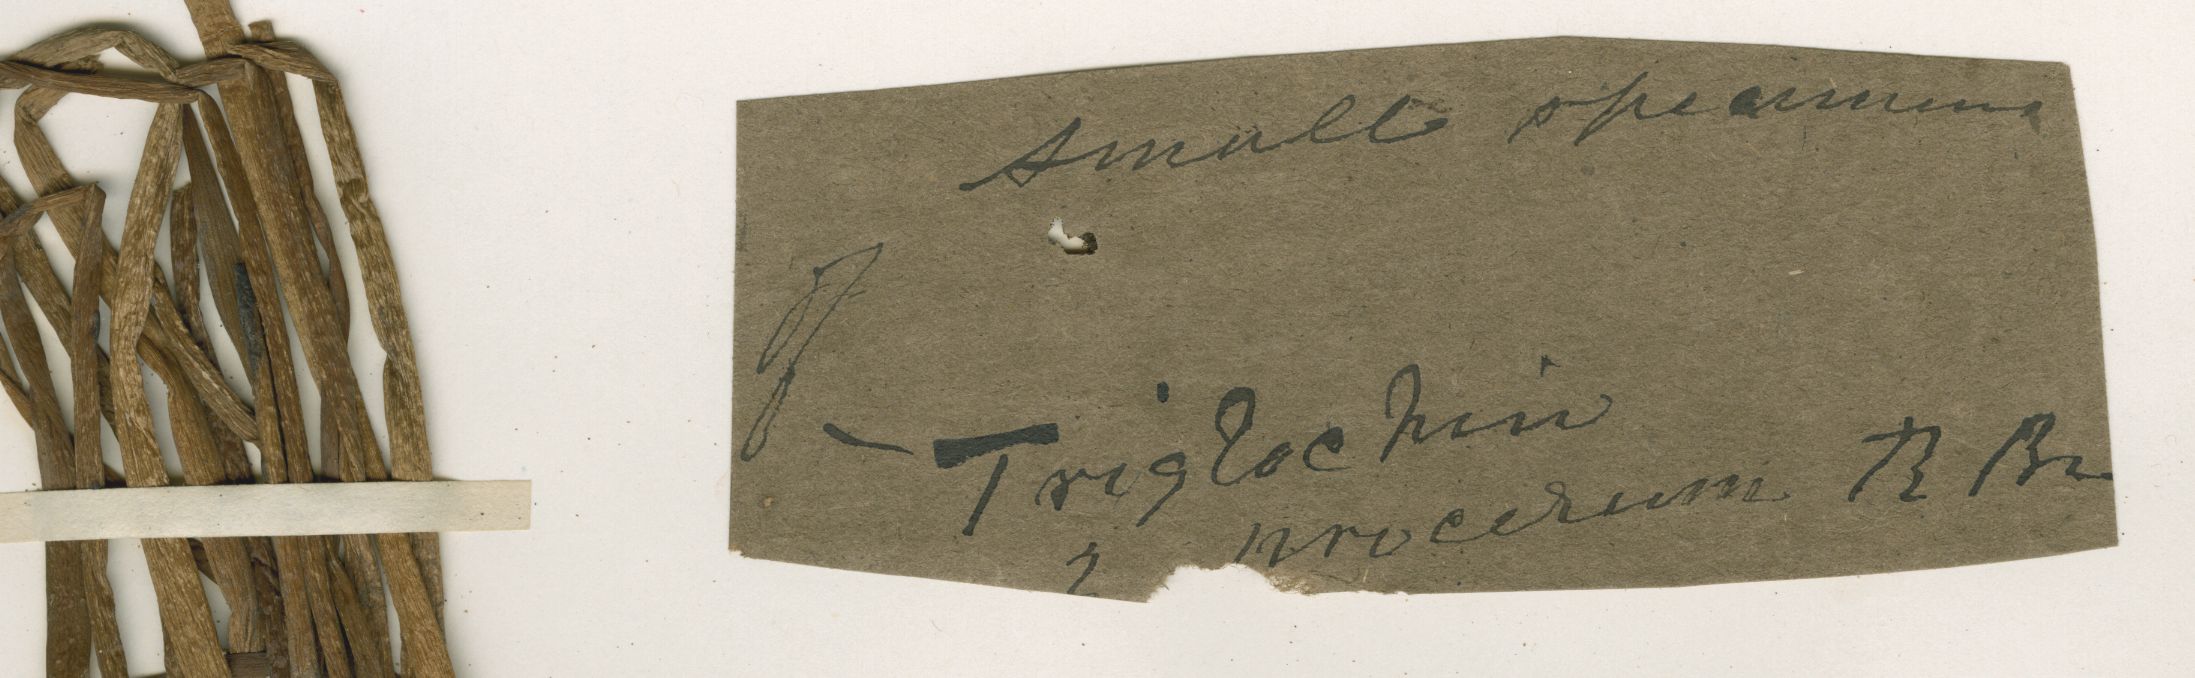 small specimens
— Triglochin
procerum R Br